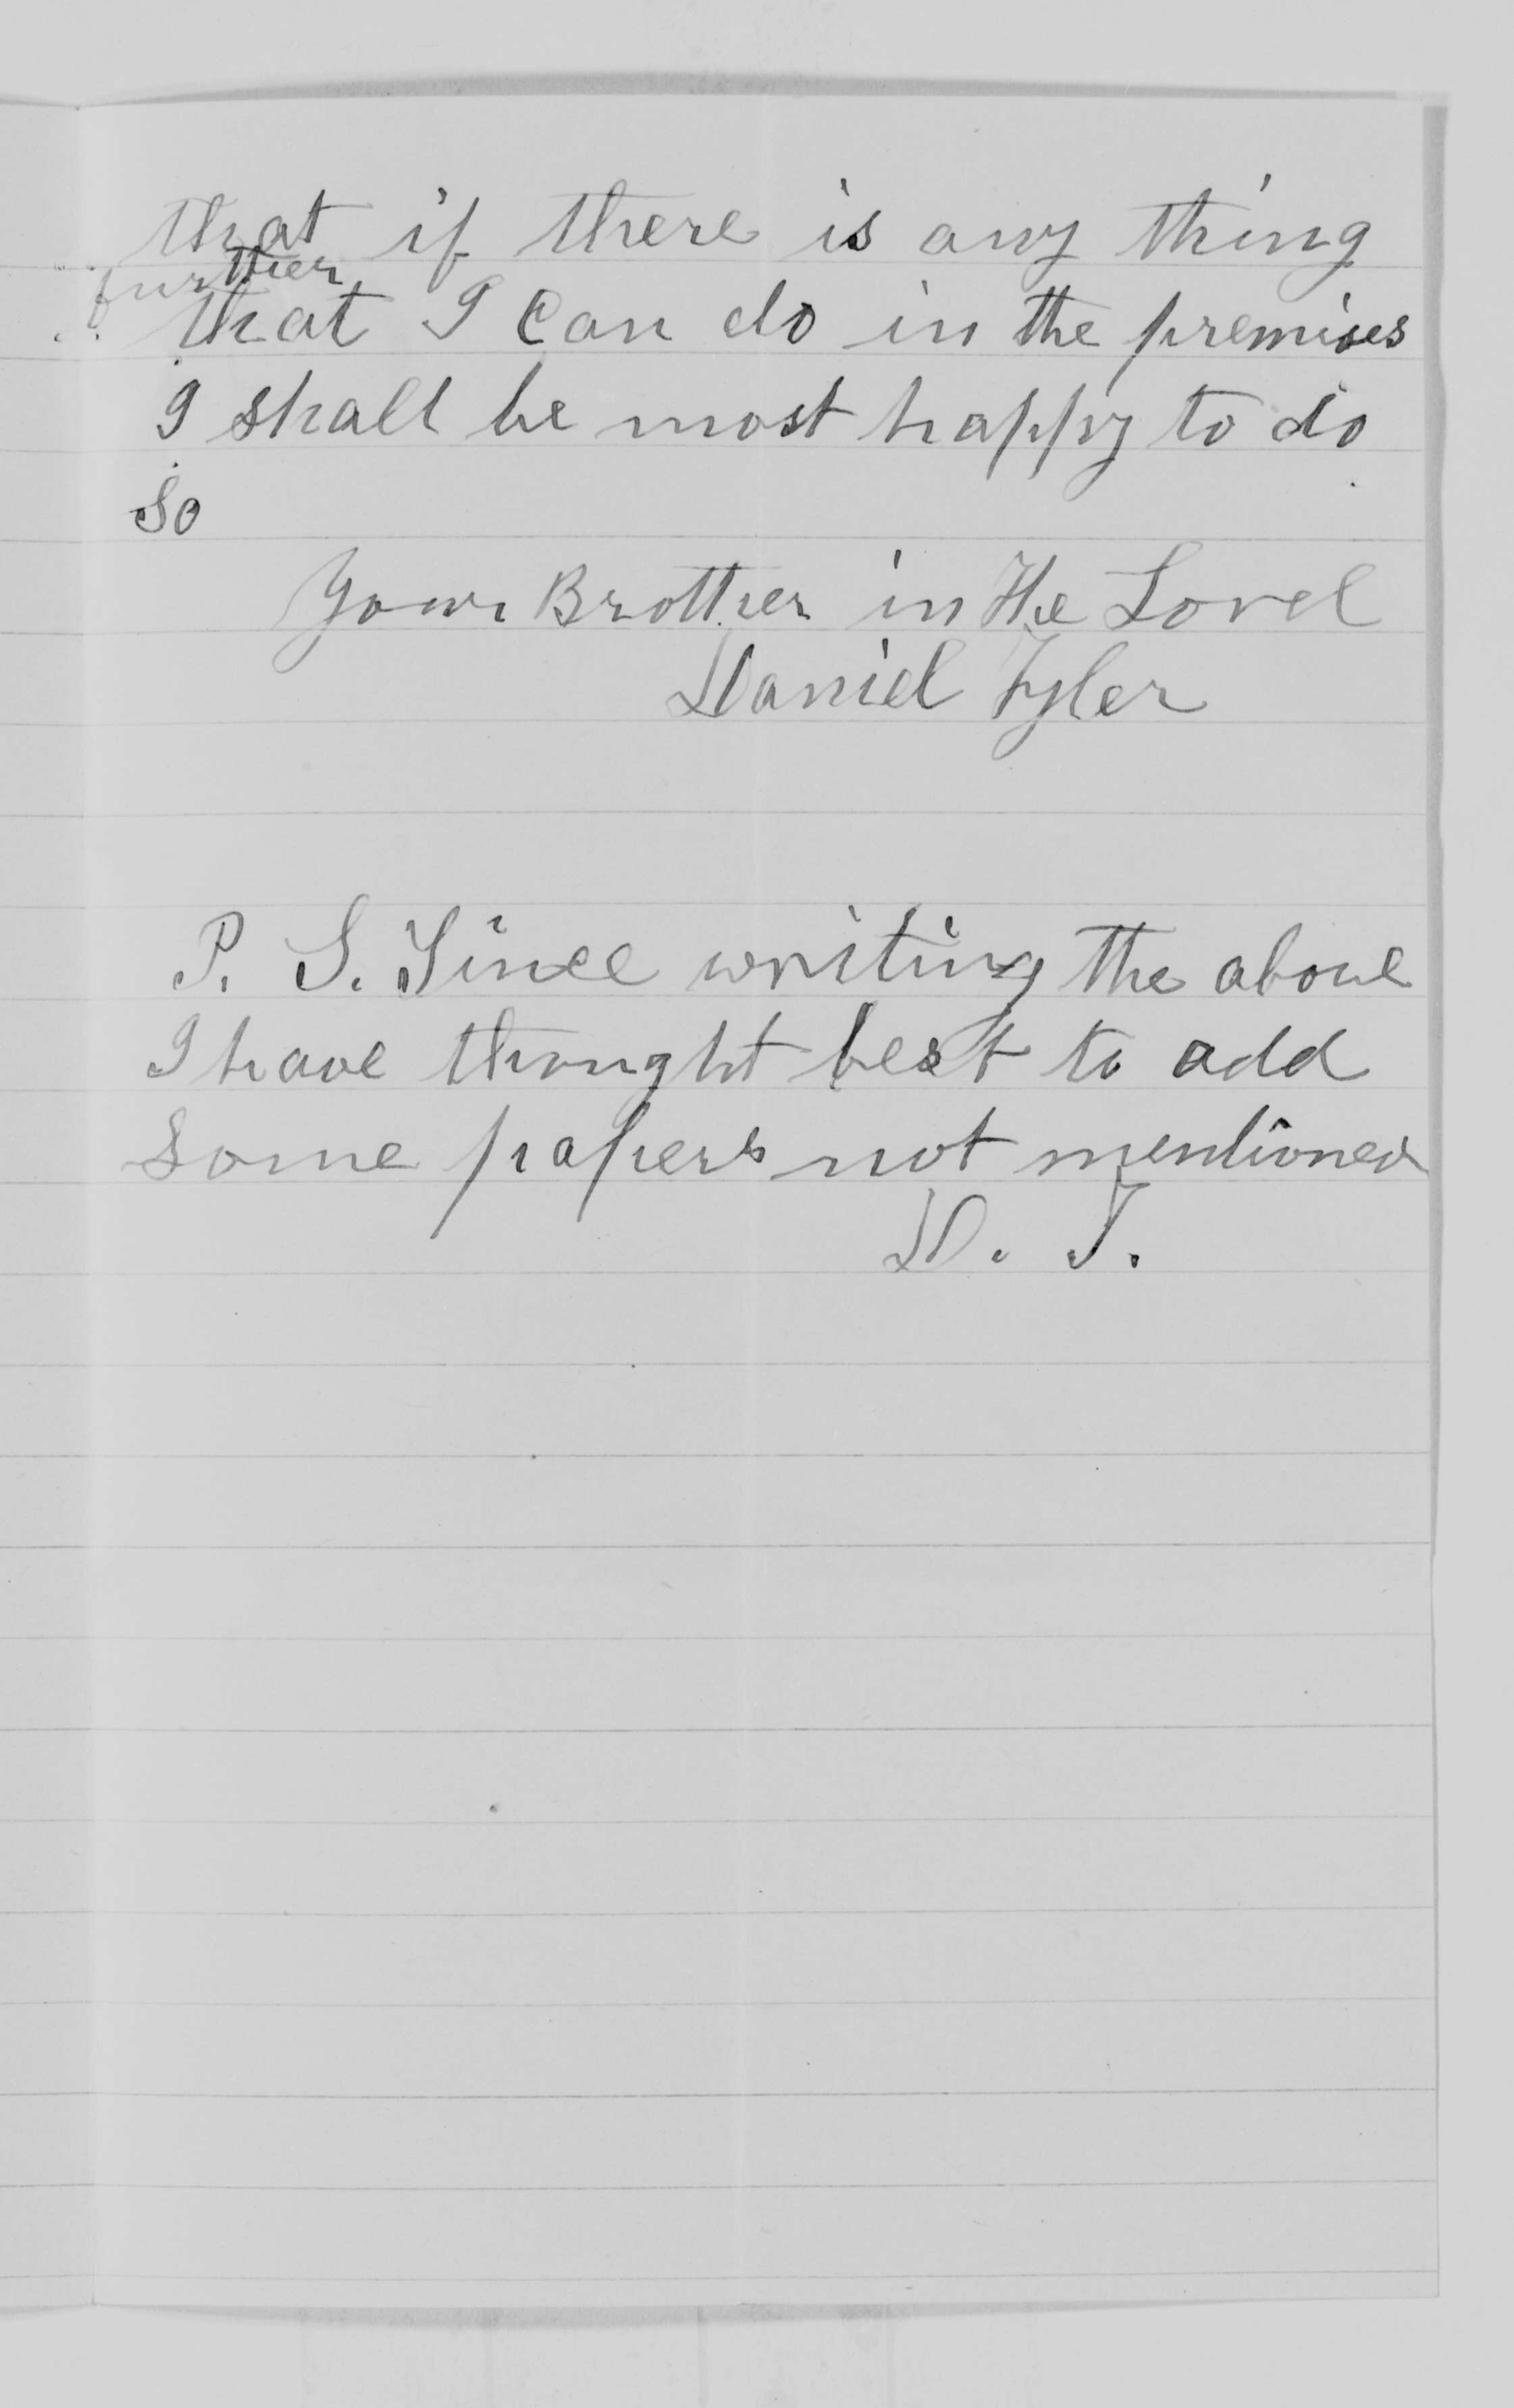 that if there is any thing
further
that I can do in the premises
I shall be most happy to do
So
Your Brother in the Lord
Daniel Tyler
P. S. Since writing the above
I have thought best to add
some papers not mentioned
D. T.